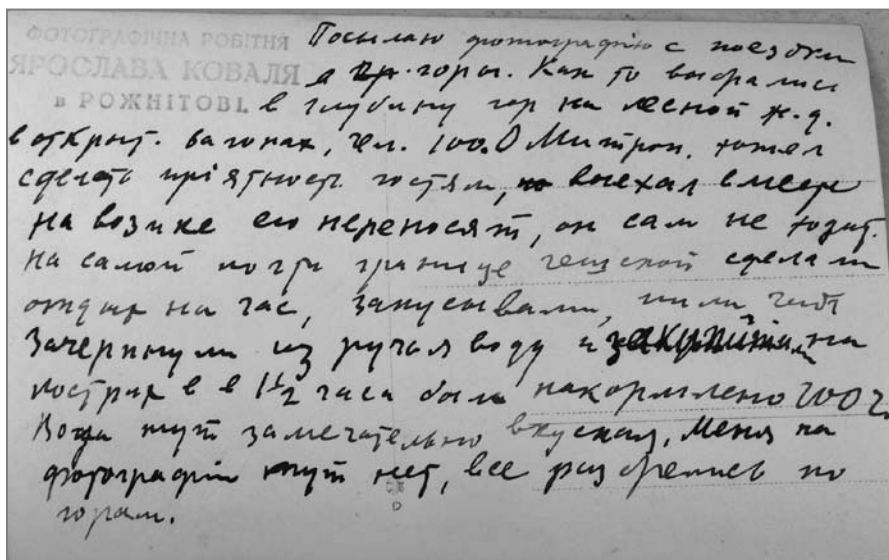 ФОТОГРАФІЧНА РОБІТНЯ
ЯРОСЛАВА КОВАЛЯ
в РОЖНІТОВІ.
Посылаю фотографию с поездки
в горы. Как то выбрались
в глубину гор на лесной ж.д.
в открыт. вагонах, чел. 100. О Митроп. хотел
сделать пріятность гостям, выехал вместе
на возике его переносят, он сам не ходит.
На самой почти границе чешской сделали
отдых на час, закусывали, пили чай
Зачерпнули из ручья воду и на
кострах в 1½ часа было накормлено 200 ч.
Вода тут замечательно вкусная, меня на
фотографіи тут нет, все разбрелись по
горам.